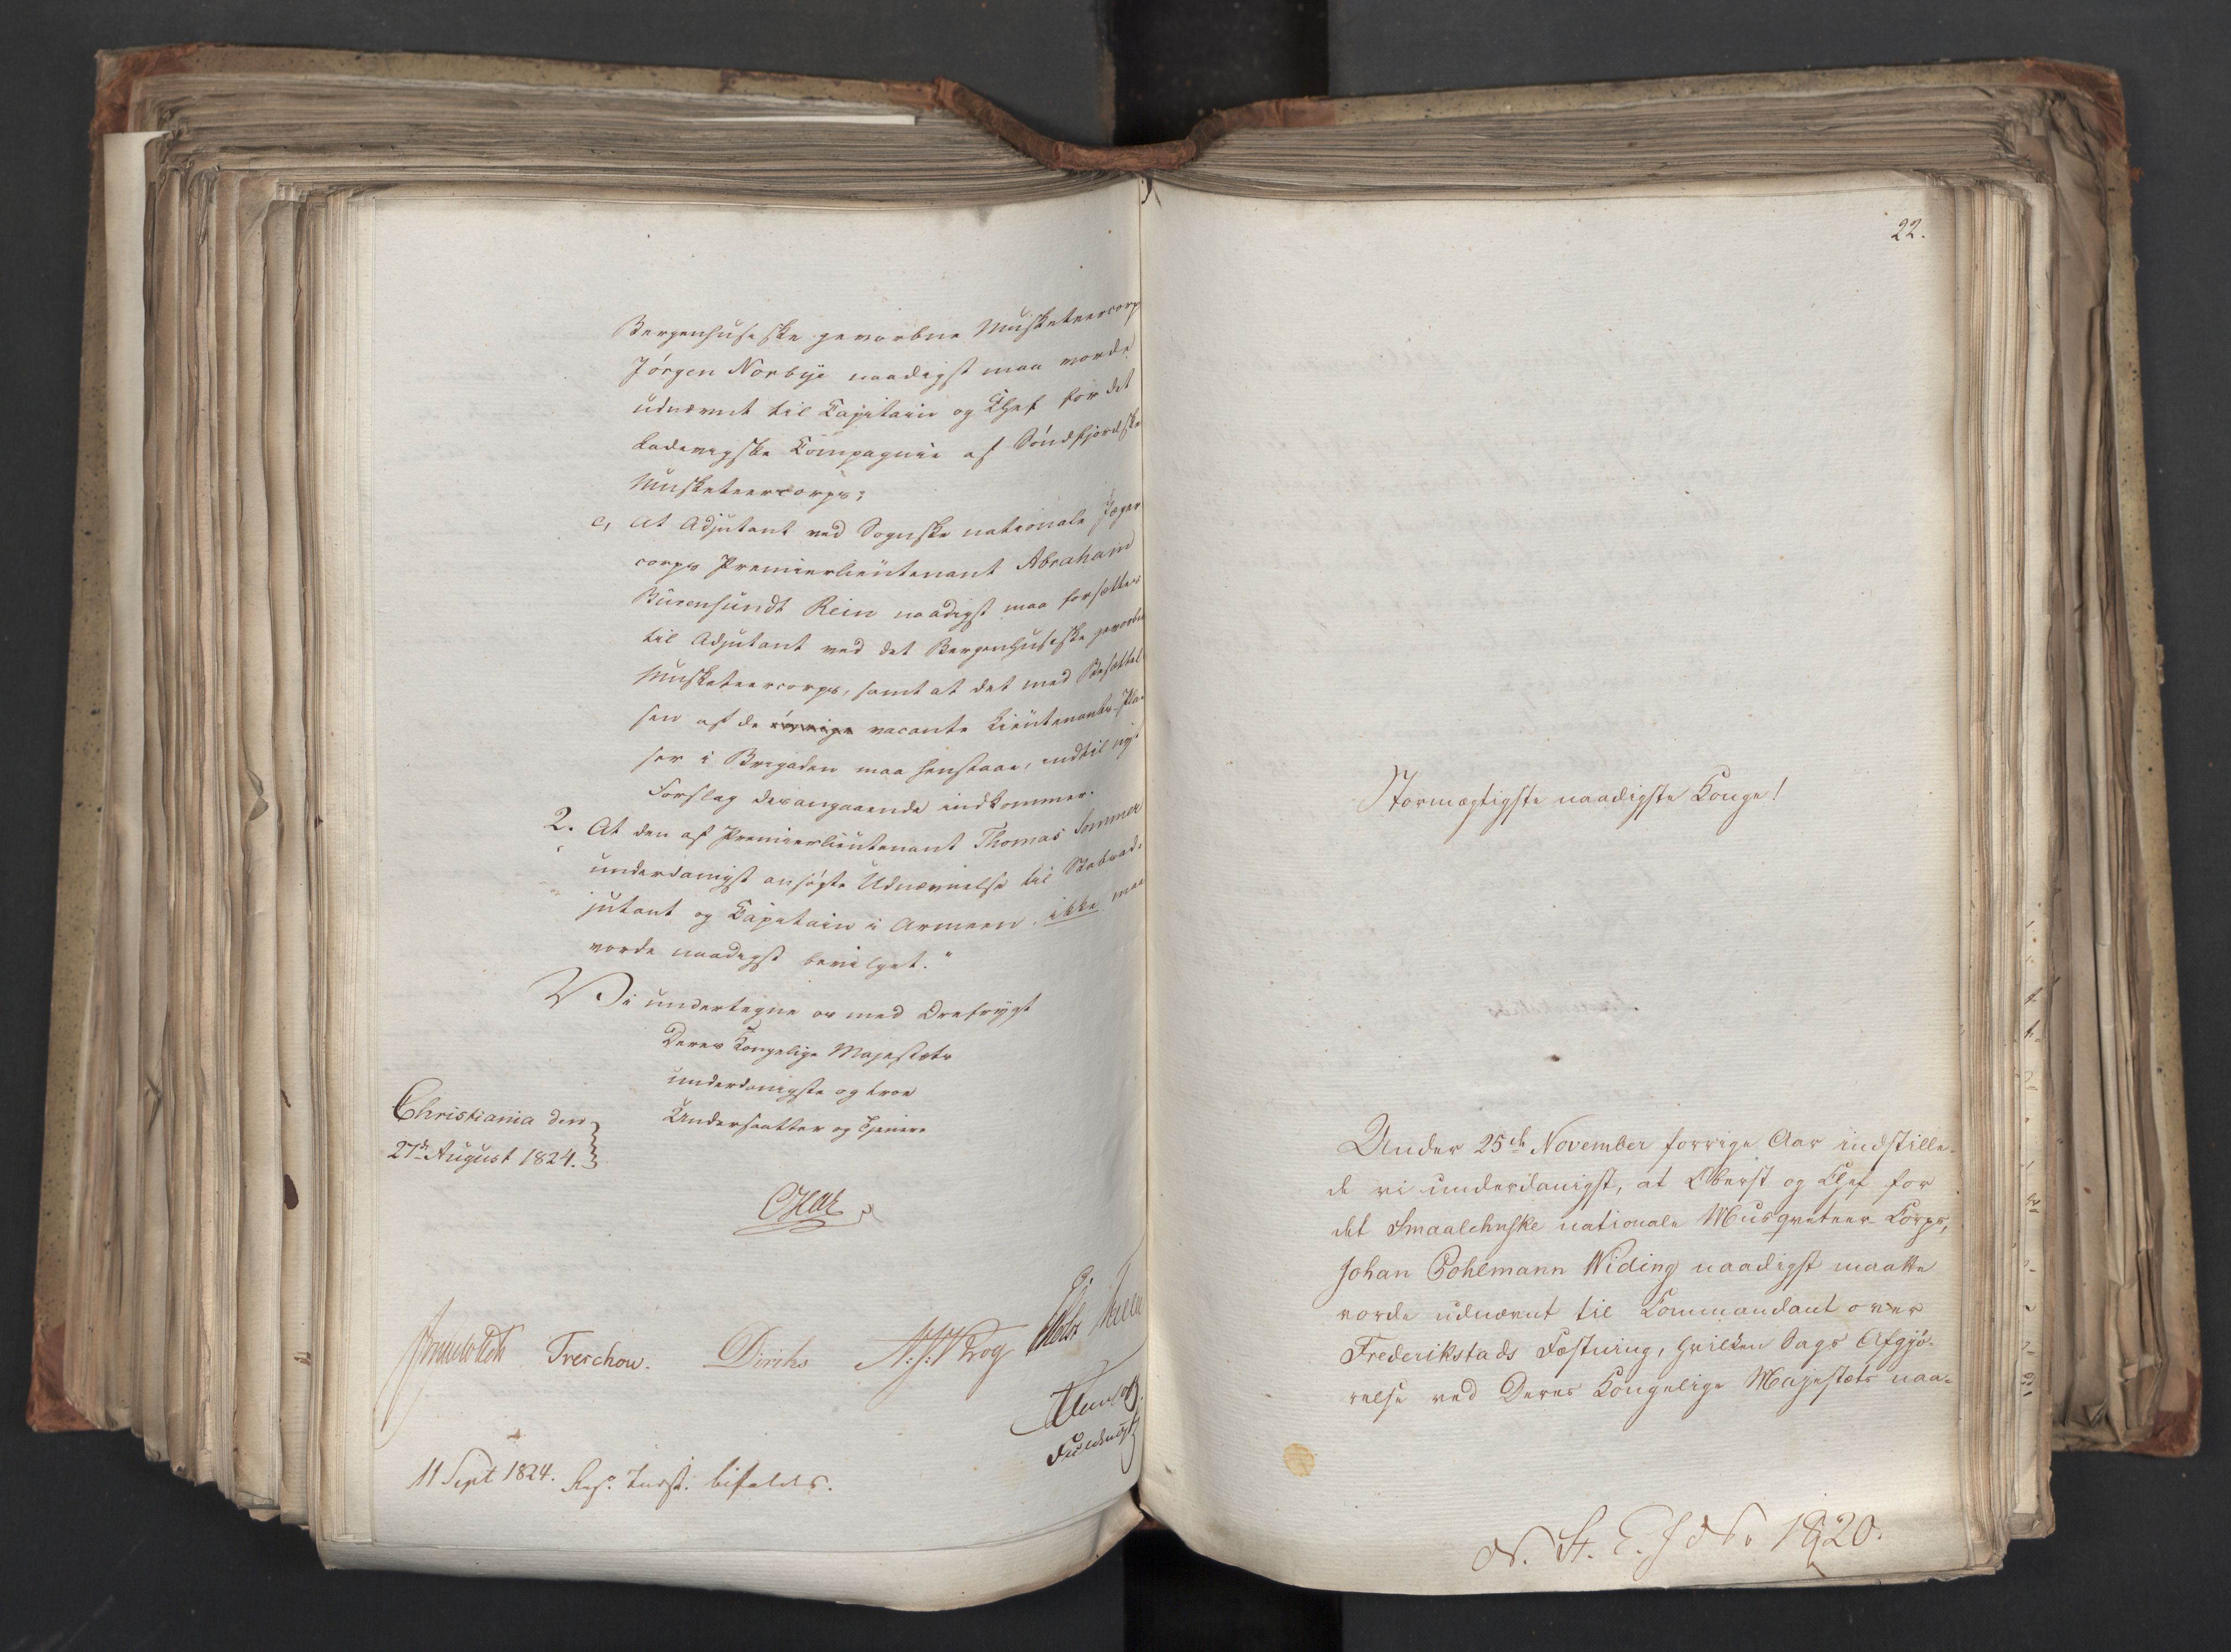 Bergenhusiske gevorbne Musketeercorps
Jörgen Norbye naadigst maa vorde
udnævnt til Capitain og Chef for det
Ladevigske Compagnie af Söndfjordske
Musketeercorps;
c, At Adjutant ved Sognske nationale Jæger
corps Premierlieutenant Abraham
Bürensundt Rein naadigst maa forsættes
til Adjutant ved det Bergenhusiske gevorbne
Musketeercorps, samt at det med Besættel
sen af de vacante Lieutenants-Pla-
ser i Brigaden maa henstaae, indtil nyt
Forslag desangaaende indkommer.
2. At den af Premierlieutenant Thomas Sommer
underdanigst ansögte Udnævnelse til Stabsad-
jutant og Capitain i Armeen, ikke maa
vorde naadigst bevilget."
Vi undertegne os med Ærefrygt
Deres Kongelige Majestæts
underdanigste og troe
Undersaatter og Tjenere
Christiania den
27de August 1824.
Treschow. Diriks N:J:Krog
11 Sept 1824. Res: Indst. bifaldes.
22.
Stormægtigste naadigste Konge!
Under 25de November forrige Aar indstille-
de vi underdanigst, at Oberst og Chef for
det Smaalehnske nationale Musqueteer-Corps,
Johan Pohlmann Widing naadigst maatte
vorde udnævnt til Commandant over
Frederikstads Fæstning, hvilken Sags Afgjö-
relse ved Deres Kongelige Majestæts naa-
N. St. E. J No 1820.